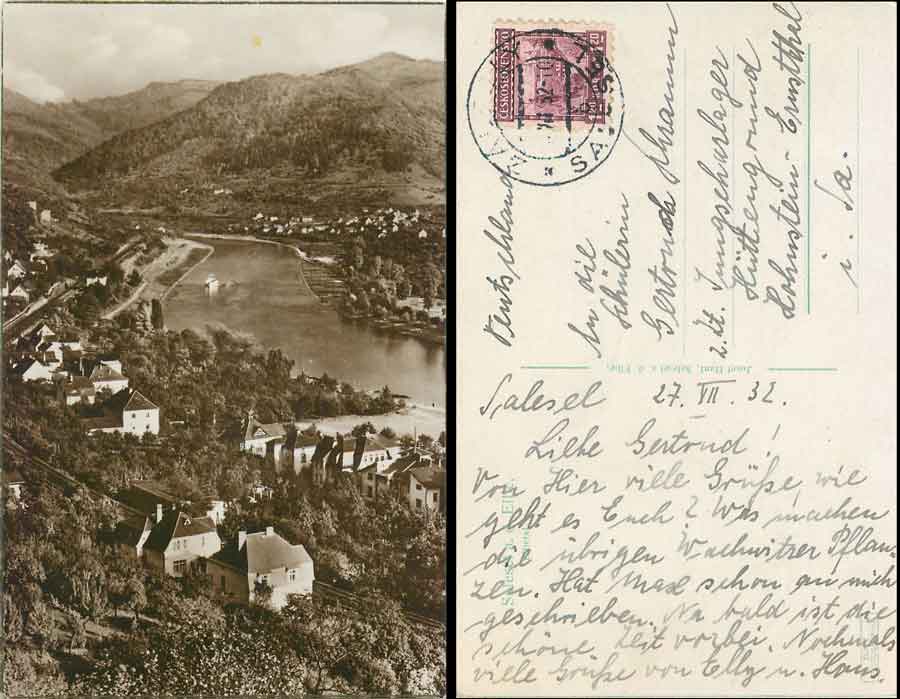 ČESKOSLOVENSKO
Deutschland
An die
Schülerin
Gertrude Schramm
z. Zt. Jungscharlager
Hüttengrund
Hohnstein-Ernstthal
i. Sa.
Josef Hanl, Salesel a. d. Elbe
Salesel 27. VII. 32.
Liebe Gertrud!
Von Hier viele Grüße, wie
geht es Euch? Was machen
die übrigen Wachwitzer Pflan-
zen. Hat Max schon an mich
geschrieben. Na bald ist die
schöne Zeit vorbei. Nochmals
viele Grüße von Elly u. Hans.